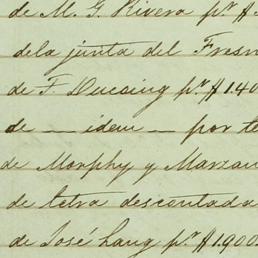 de M. G. Rivero pr $
dela junta del Fresn
de F Ducsing pr $140
de — idem — por te
de Morphy y Marzan
de letra descontada
de José Lang pr $1.900